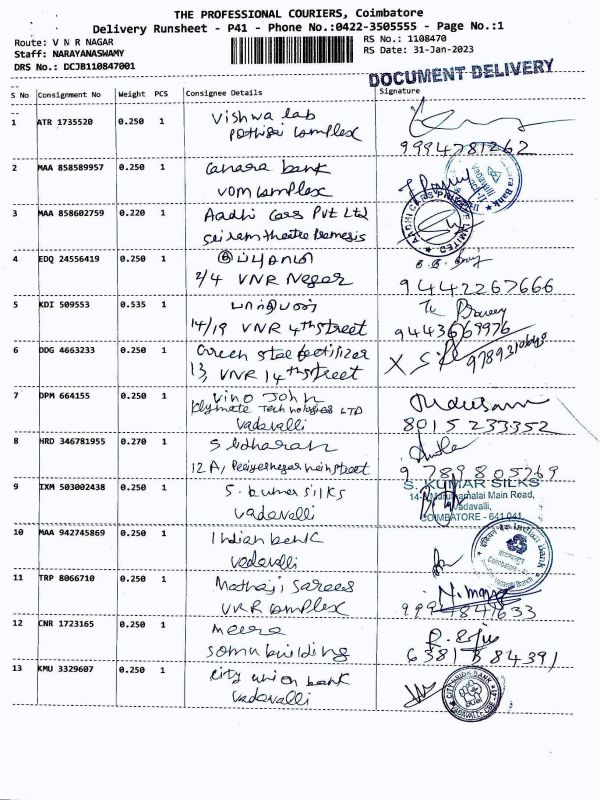 THE PROFESSIONAL COURIERS, Coimbatore
Delivery Runsheet - P41 - Phone No.:0422-3505555 - Page No.:1
Route: V N R NAGAR
RS No.: 1108470
Staff: NARAYANASWAMY
RS Date: 31-Jan-2023
DRS No.: DCJB110847001
DOCUMENT DELIVERY
S No Consignment No Weight PCS Consignee Details Signature
1 ATR 1735520 0.250 1 Vishwa lab
complex
9994781262
2 MAA 858589957 0.250 1 Canara bank
VOM complex
3 MAA 858602759 0.220 1 Aadhi Cars Pvt Ltd
Sri ram theatre
AADHI CARS PRIVATE LIMITED
4 EDQ 24556419 0.250 1
2/4 VNR Nagar
9442267666
5 KDI 509553 0.535 1
14/19 VNR 4th street
9443669976
6 DDG 4663233 0.250 1 Green star fertilizer
13, VNR 14th street
7 DPM 664155 0.250 1 Vino John
Plymate Technologies LTD
Vadavalli
8015 233352
8 HRD 346781955 0.270 1 Sridharan
12 A, Periyarnagar main street
9789805269
9 IXM 503002438 0.250 1 S. kumar silks
Vadavalli
S. KUMAR SILKS
Maruthamalai Main Road,
Vadavalli,
COIMBATORE - 641 041
10 MAA 942745869 0.250 1 Indian bank
Vadavalli
Indian Bank
11 TRP 8066710 0.250 1 Mathaji Sarees
VKR complex
12 CNR 1723165 0.250 1 Meera
Somu building
13 KMU 3329607 0.250 1 City union bank
Vadavalli
CITY UNION BANK